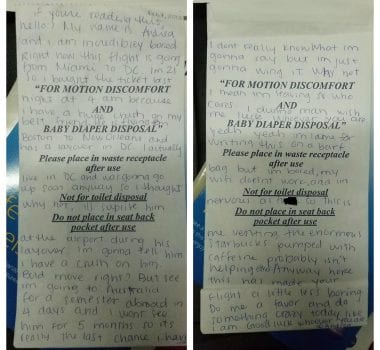 If you're reading this,
hello! My name is
and i am incredibley bored
Right now this flight is going
from Miami to DC. Im 21
So i bought the ticket last
"FOR MOTION DISCOMFORT
night at 4 am because
AND
i have a huge crush on my
BABY DIAPER DISPOSAL"
best friend
Boston to New Orleans and
has a layover in DC. I actually
Please place in waste receptacle
after use
live in DC and was gonna go
up soon anyway so i thought
Not for toilet disposal
why not ill suprise him
Do not place in seat back
pocket after use
at the airport during his
layover i'm gonna tell him
i have a crush on him.
Bad move right? But see
im going to Australia
for a semester abroad in
4 days and i wont see
him for 5 months so its
really the last chance i have
I dont really know what im
gonna say but im just
gonna wing it. Why not
"FOR MOTION DISCOMFORT
I mean im leaving so who
cares.
AND
me luck
BABY DIAPER DISPOSAL"
yeah yeah im
writing this on a barf
Please place in waste receptacle
after use
bag but im bored, my
wifi doesnt work, and im
Not for toilet disposal
nervous as so this is
Do not place in seat back
pocket after use
me venting the enormous
Starbucks pumped with
caffeine probably isn't
helping Anyway here
this has made your
flight a little less boring
Do me a favor and do
something crazy today like
i am Good luck whoever